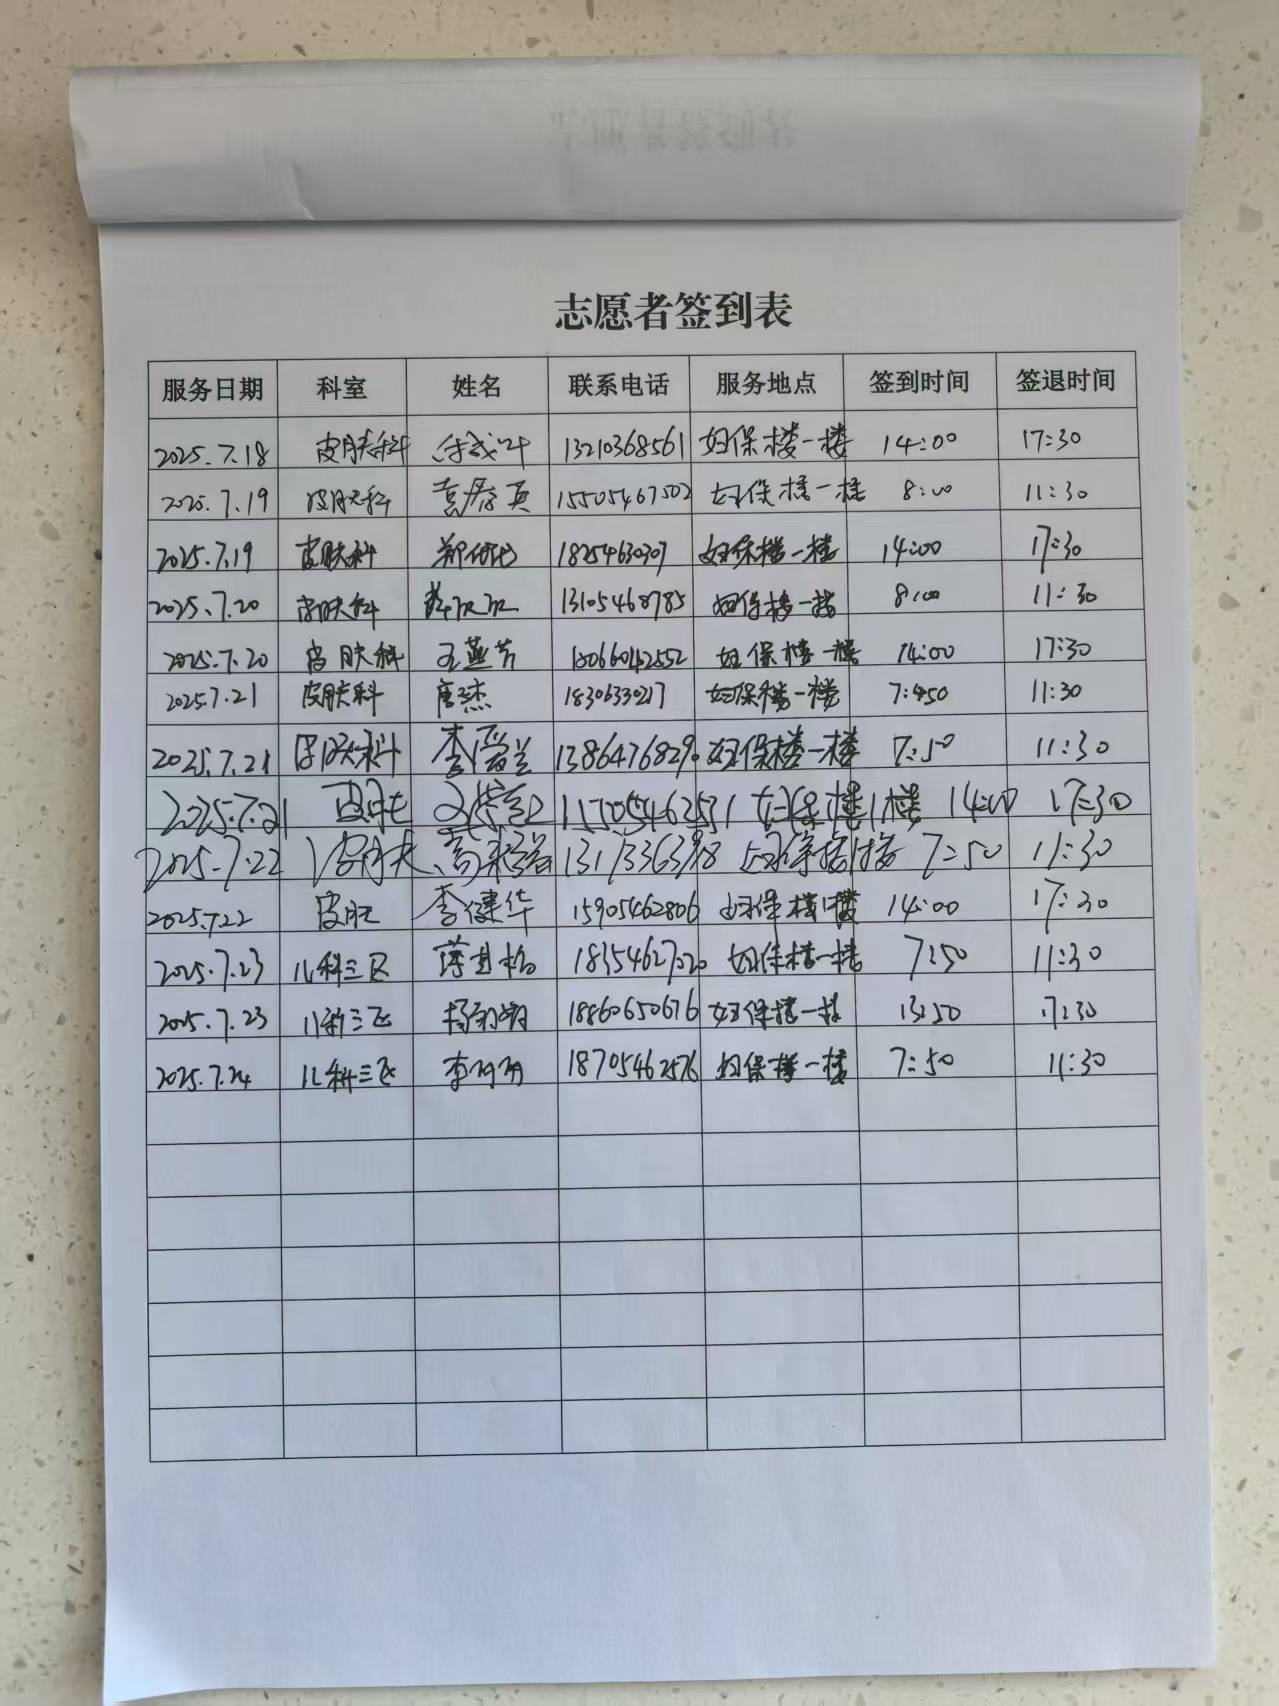 志愿者签到表
服务日期 科室 姓名 联系电话 服务地点 签到时间 签退时间
2025.7.18 皮肤科 13210368561 妇保楼一楼 14:00 17:30
2025.7.19 皮肤科 15505467502 妇保楼一楼 8:00 11:30
2025.7.19 皮肤科 18254630307 妇保楼一楼 14:00 17:30
2025.7.20 皮肤科 13105468785 妇保楼一楼 8:00 11:30
2025.7.20 皮肤科 王燕芳 18066042552 妇保楼一楼 14:00 17:30
2025.7.21 皮肤科 唐杰 18306330217 妇保楼一楼 7:50 11:30
2025.7.21 皮肤科 13864768290 妇保楼一楼 7:50 11:30
2025.7.21 皮肤 15705462531 妇保楼1楼 14:00 17:30
2025.7.22 皮肤 7:50 11:30
2025.7.22 皮肤 李健华 15905462806 妇保楼1楼 14:00 17:30
2025.7.23 儿科三区 妇保楼一楼 7:50 11:30
2025.7.23 儿科三区 18860650676 妇保楼一楼 13:50 17:30
2025.7.24 儿科三区 李丽丽 18705462576 妇保楼一楼 7:50 11:30